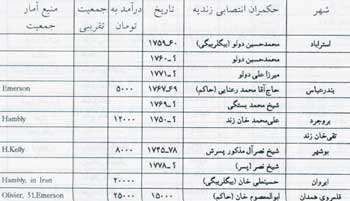 شهر	حکمران انتصابی زندیه	تاریخ	درآمد به تومان	جمعیت تقریبی	منبع آمار جمعیت
استراباد	محمدحسین دولو (بیگلربیگی)	۱۷۵۹-۶۰
محمدحسین دولو	؟-۱۷۶۰
میرزا علی دولو	؟-۱۷۷۱
بندرعباس	حاج‌آقا محمد رعنایی (حاکم)	۱۷۶۷-۶۹	۵۰۰۰	Emerson
شیخ محمد بستگی	؟-۱۷۶۹
بروجرد	علی‌محمد خان زند	؟-۱۷۵۰	۱۲۰۰۰	Hambly
تقی‌خان زند
بوشهر	شیخ نصر آل‌مذکور پسرش	۱۷۴۵-۷۸	۸۰۰۰	H.Kelly
شیخ نصر (پسر)	؟-۱۷۷۸
ایروان	حسینعلی خان (بیگلربیگی)	۲۰۰۰۰	Hambly, in Iran
قلمروی همدان	ابوالمعصوم خان (حاکم)	۱۵۰۰۰	۲۵۰۰۰	Olivier, 31.Emerson